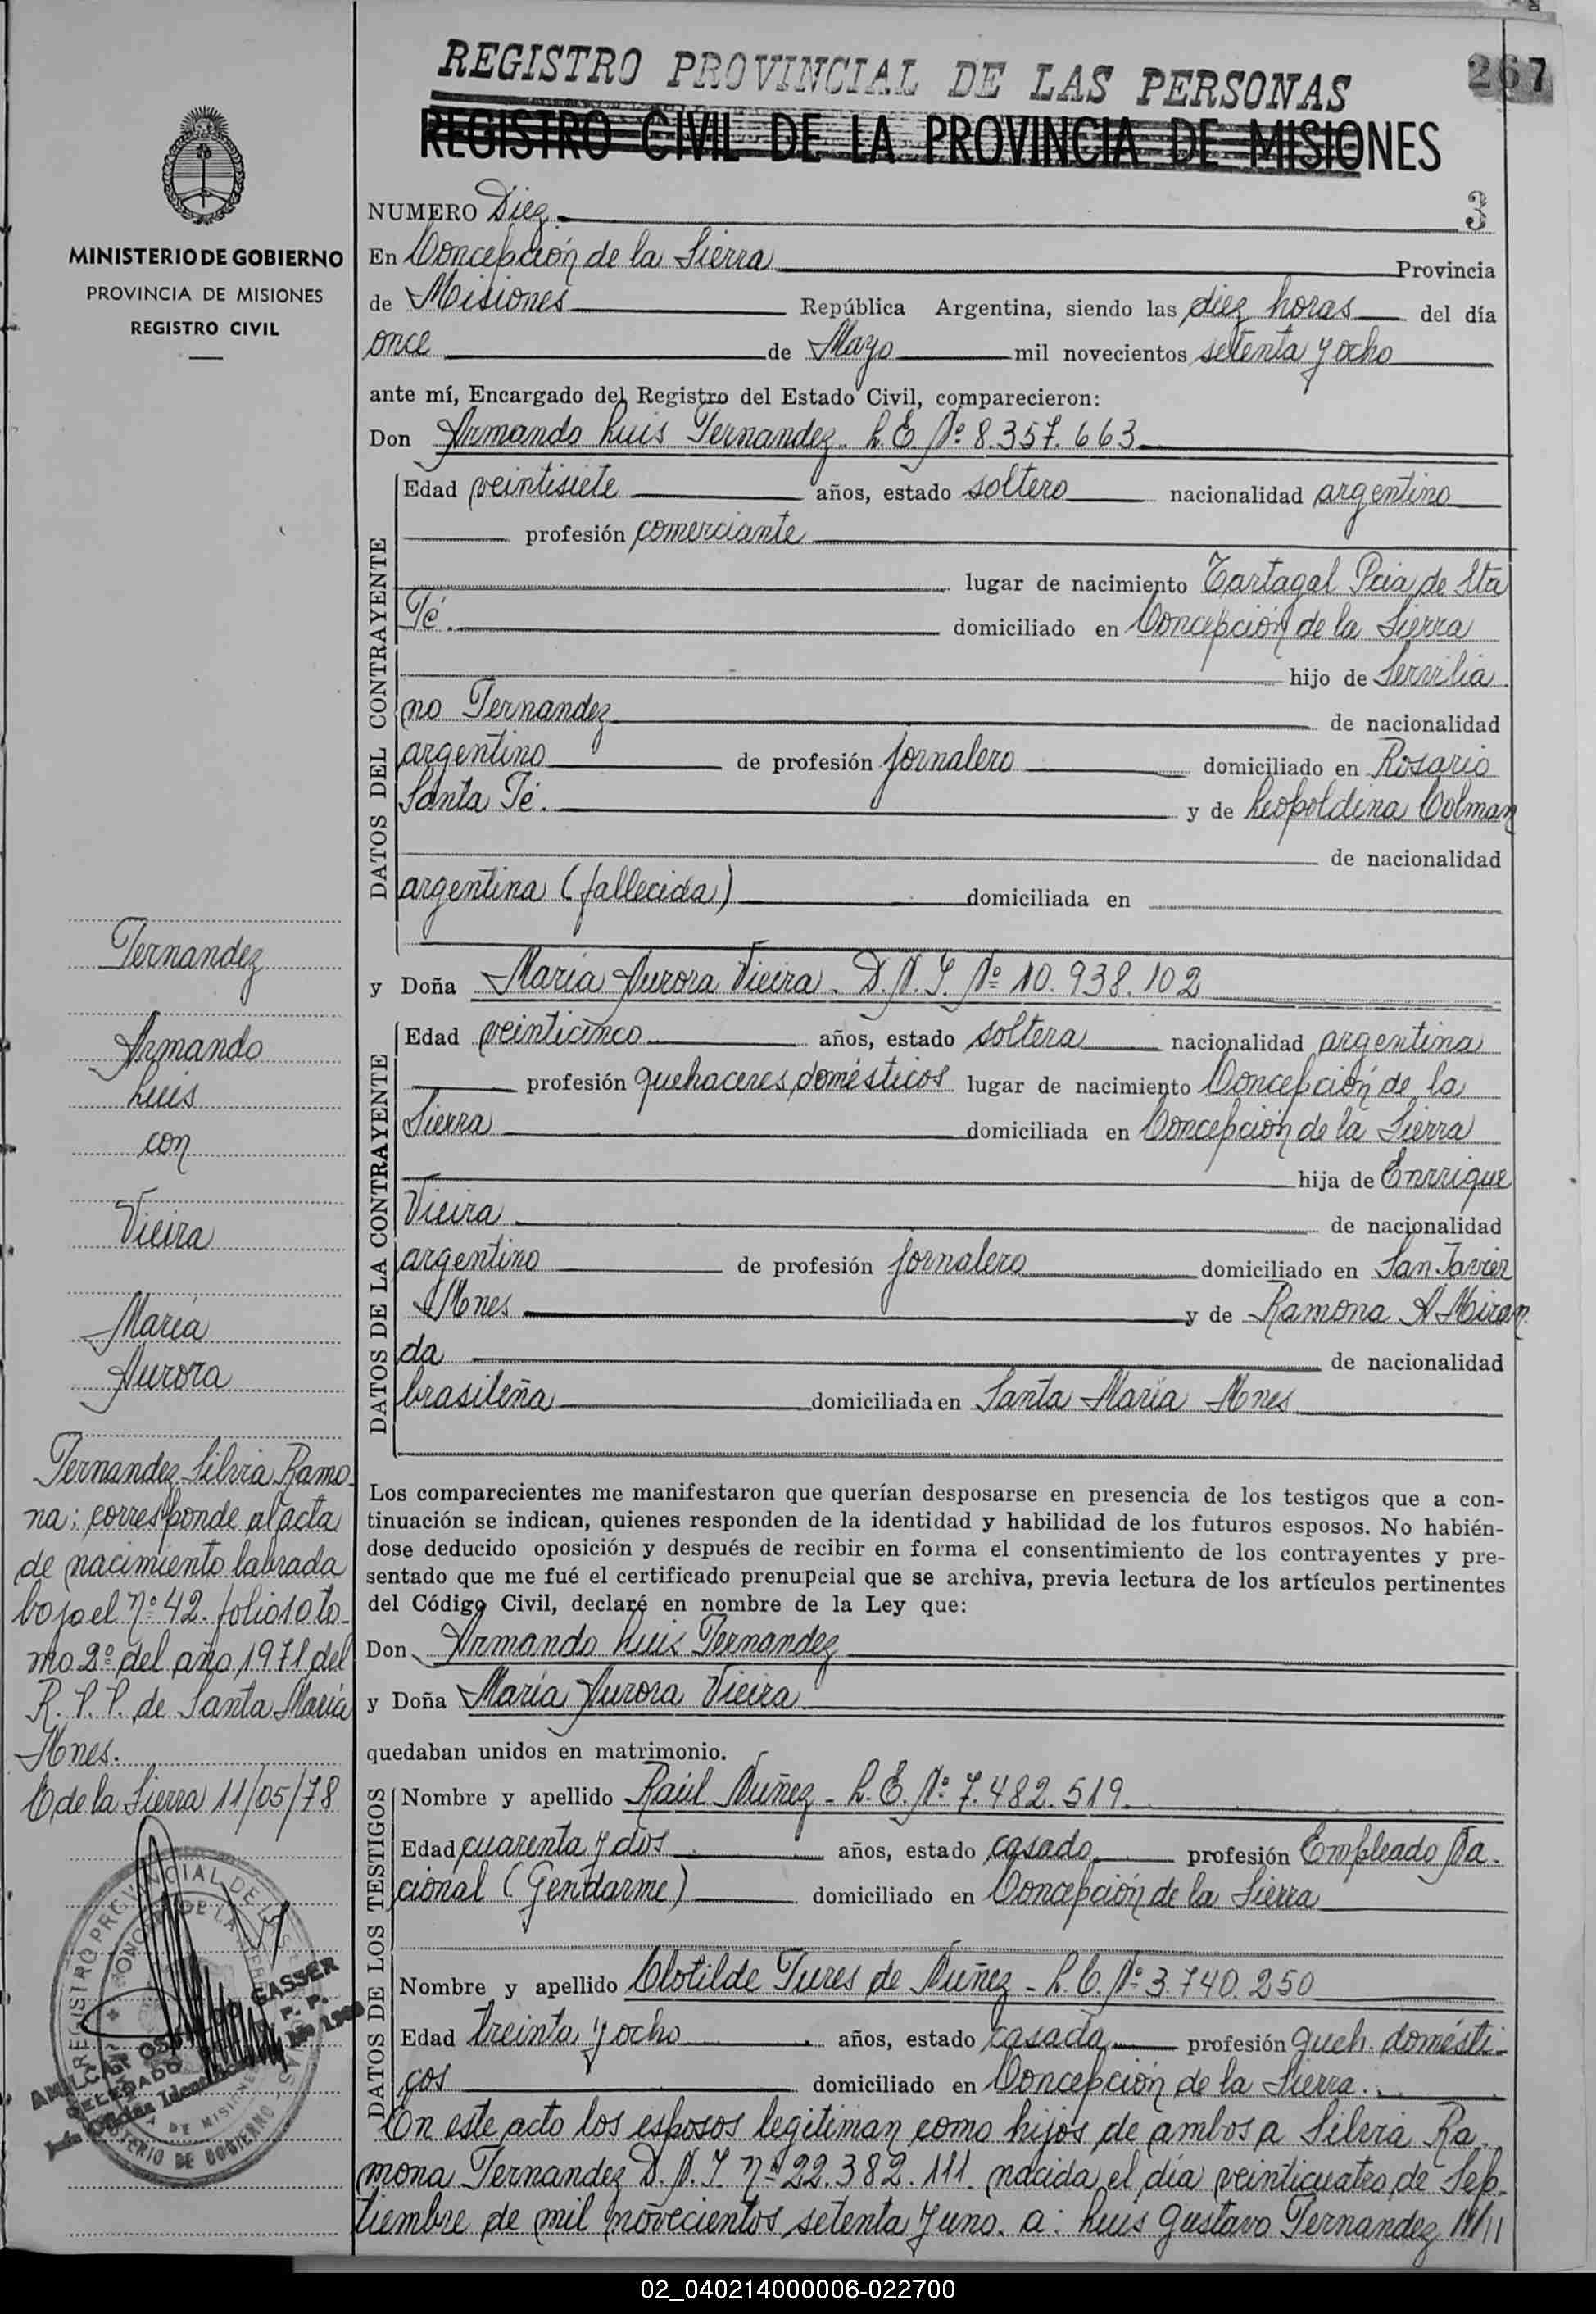 267
REGISTRO PROVINCIAL DE LAS PERSONAS
REGISTRO CIVIL DE LA PROVINCIA DE MISIONES
3
MINISTERIO DE GOBIERNO
PROVINCIA DE MISIONES
REGISTRO CIVIL
NUMERO Diez
En Concepción de la Sierra Provincia
de Misiones República Argentina, siendo las diez horas del día
once de Mayo mil novecientos setenta y ocho
ante mí, Encargado del Registro del Estado Civil, comparecieron:
Don Armando Luis Fernandez L. E. Nº 8.357.663
DATOS DEL CONTRAYENTE
Edad veintisiete años, estado soltero nacionalidad argentino
profesión comerciante
lugar de nacimiento Tartagal Pcia de Sta
Fé. domiciliado en Concepción de la Sierra
hijo de Servilia
no Fernandez de nacionalidad
argentino de profesión jornalero domiciliado en Rosario
Santa Fé. y de Leopoldina Colman
de nacionalidad
argentina (fallecida) domiciliada en
y Doña María Aurora Vieira. D. N. I. Nº 10.938.102
DATOS DE LA CONTRAYENTE
Edad veinticinco años, estado soltera nacionalidad argentina
profesión quehaceres domésticos lugar de nacimiento Concepción de la
Sierra domiciliada en Concepción de la Sierra
hija de Enrrique
Vieira de nacionalidad
argentino de profesión jornalero domiciliado en San Javier
Mnes y de Ramona A Miran
da de nacionalidad
brasileña domiciliada en Santa María Mnes
Los comparecientes me manifestaron que querían desposarse en presencia de los testigos que a con-
tinuación se indican, quienes responden de la identidad y habilidad de los futuros esposos. No habién-
dose deducido oposición y después de recibir en forma el consentimiento de los contrayentes y pre-
sentado que me fué el certificado prenupcial que se archiva, previa lectura de los artículos pertinentes
del Código Civil, declaré en nombre de la Ley que:
Don Armando Luis Fernandez
y Doña María Aurora Vieira
quedaban unidos en matrimonio.
DATOS DE LOS TESTIGOS
Nombre y apellido Raúl Nuñez - L. E. Nº 7.482.519.
Edad cuarenta y dos años, estado casado profesión Empleado Na.
cional (Gendarme) domiciliado en Concepción de la Sierra
Nombre y apellido Clotilde Fures de Nuñez - L. C. Nº 3.740.250
Edad treinta y ocho años, estado casada profesión queh. domésti-
cos domiciliado en Concepción de la Sierra.
En este acto los esposos legitiman como hijos de ambos a Silvia Ra.
mona Fernandez D. N. I. Nº 22.382.111. nacida el día veinticuatro de Sep-
tiembre de mil novecientos setenta y uno. a: Luis Gustavo Fernandez ////
Fernandez
Armando
Luis
con
Vieira
María
Aurora
Fernandez Silvia Ramo
na: corresponde al acta
de nacimiento labrada
bajo el Nº 42. folio 10 to-
mo 2º del año 1971 del
R. P. P. de Santa María
Mnes.
C. de la Sierra 11/05/78
REGISTRO PROVINCIAL DE LAS
MINISTERIO DE GOBIERNO
GASSER
DELEGADO R. P. P.
Jefe Oficina Identificación
02_040214000006-022700